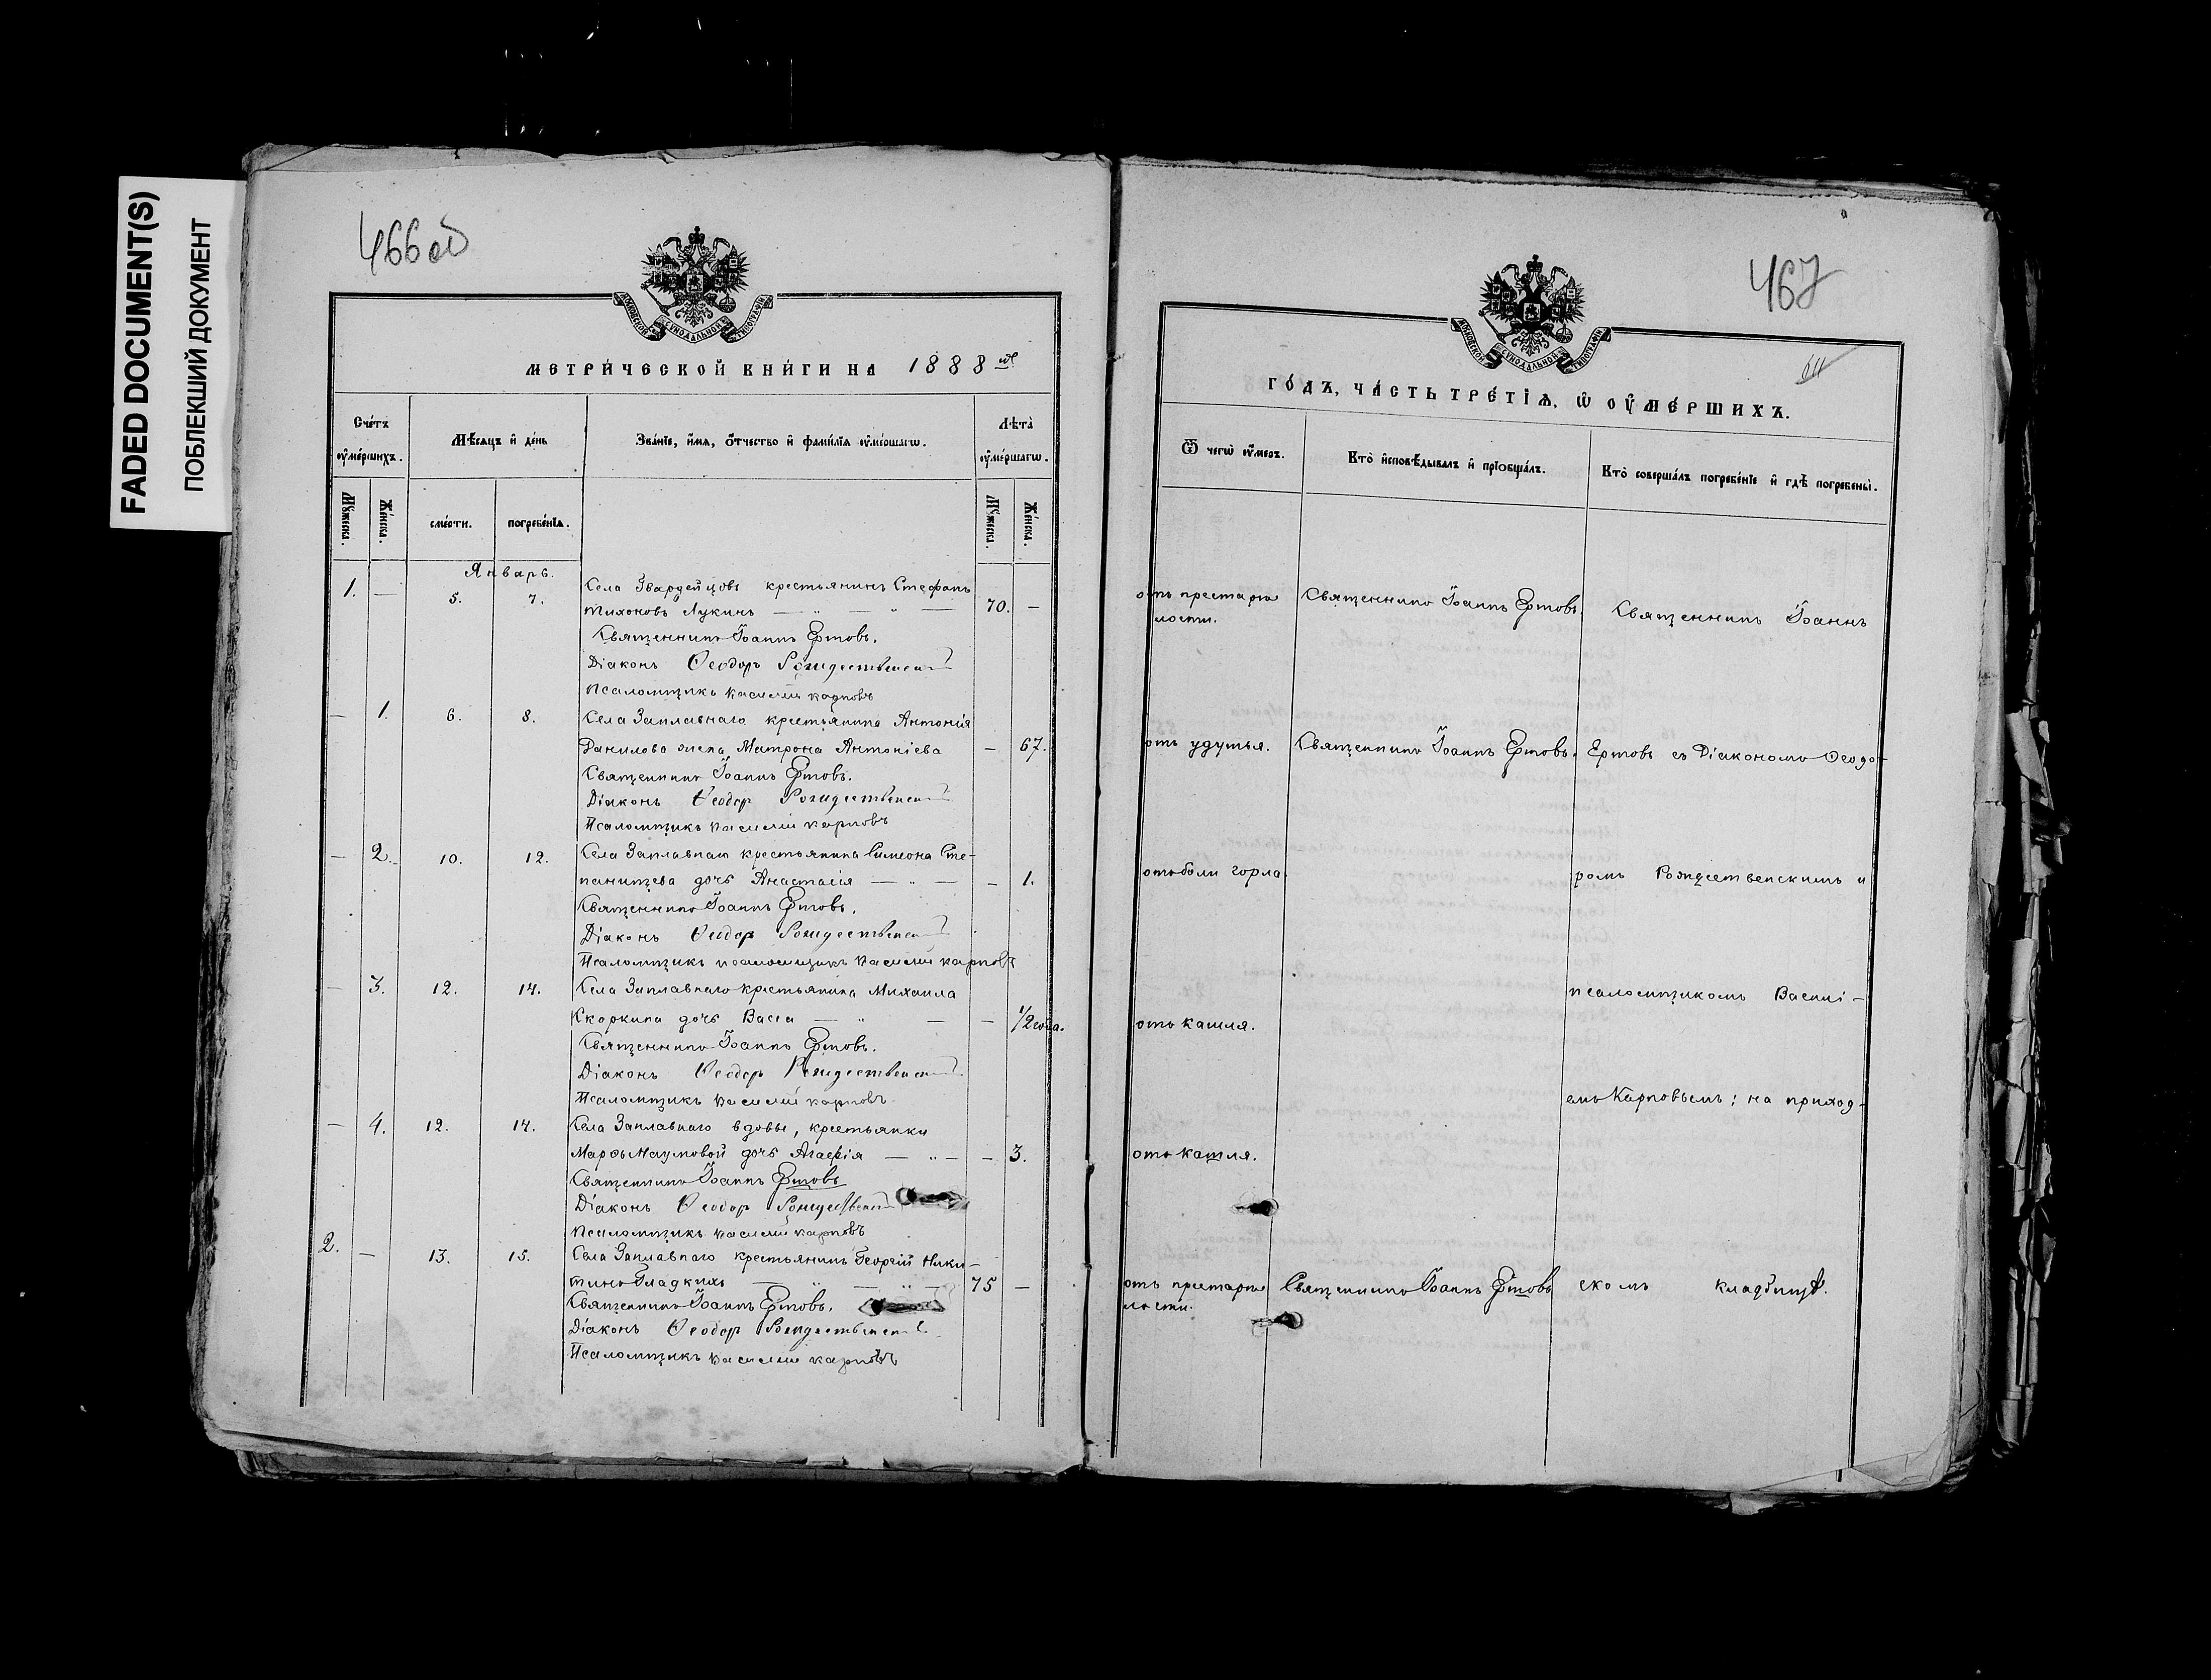 FADED DOCUMENT(S)
ПОБЛЕКШИЙ ДОКУМЕНТ
466об
МОСКОВСКОЙ СѴНОДАЛЬНОЙ ТИПОГРАФІИ
МЕТРИ́ЧЕСКОЙ КНИ́ГИ НА 1888 ой
Сче́тъ ᲂу҆ме́ршихъ.
Мѣ́сѧцъ и҆ де́нь
Зва́нїе, и҆́мѧ, ѻ҆́тчество и҆ фами́лїѧ ᲂу҆ме́ршагѡ.
Лѣта̀ ᲂу҆ме́ршагѡ.
Мꙋ́жеска.
Же́нска.
сме́рти.
погребе́нїѧ.
Мꙋ́жеска.
Же́нска.
Январь.
1. — 5. 7. Села Гвардейцовъ крестьянинъ Стефанъ
Тихоновъ Лукинъ — „ — „ — 70. —
Священникъ Іоаннъ Ертовъ.
Діаконъ Ѳеодоръ Рождественскій
Псаломщикъ Василій Карповъ
— 1. 6. 8. Села Заплавнаго крестьянина Антонія
Данилова жена Матрона Антоніева — 67.
Священникъ Іоаннъ Ертовъ.
Діаконъ Ѳеодоръ Рождественскій
Псаломщикъ Василій Карповъ
— 2. 10. 12. Села Заплавнаго крестьянина Симеона Сте-
панищева дочь Анастасія — „ — — 1.
Священникъ Іоаннъ Ертовъ.
Діаконъ Ѳеодоръ Рождественскій
Псаломщикъ псаломщикъ Василій Карповъ
— 3. 12. 14. Села Заплавнаго крестьянина Михаила
Скоркина дочь Васса — „ — — 1/2 года.
Священникъ Іоаннъ Ертовъ.
Діаконъ Ѳеодоръ Рождественскій
Псаломщикъ Василій Карповъ
— 4. 12. 14. Села Заплавнаго вдовы, крестьянки
Марѳы Наумовой дочь Агаѳія — „ — — 3.
Священникъ Іоаннъ Ертовъ
Діаконъ Ѳеодоръ Рождественскій
Псаломщикъ Василій Карповъ
2. — 13. 15. Села Заплавнаго крестьянинъ Георгій Ники-
тинъ Гладкихъ — „ — „ — 75 —
Священникъ Іоаннъ Ертовъ.
Діаконъ Ѳеодоръ Рождественскій
Псаломщикъ Василій Карповъ
467
МОСКОВСКОЙ СѴНОДАЛЬНОЙ ТИПОГРАФІИ
ГО́ДЪ, ЧА́СТЬ ТРЕ́ТІѦ, Ѡ҆ ОУ҆МЕ́РШИХЪ.
Ѿ чегѡ̀ ᲂу҆́меръ.
Кто̀ и҆сповѣ́дывалъ и҆ прїѻбща́лъ.
Кто̀ соверша́лъ погребе́нїе и҆ гдѣ̀ погребены̀.
отъ престарѣ
лости.
Священникъ Іоаннъ Ертовъ.
Священникъ Іоаннъ
отъ удушья.
Священникъ Іоаннъ Ертовъ.
Ертовъ съ Діакономъ Ѳеодо-
отъ боли горла.
ромъ Рождественскимъ и
псаломщикомъ Василі-
отъ кашля.
емъ Карповымъ; на приход-
отъ кашля.
отъ престарѣ
лости.
Священникъ Іоаннъ Ертовъ
скомъ кладбищѣ.